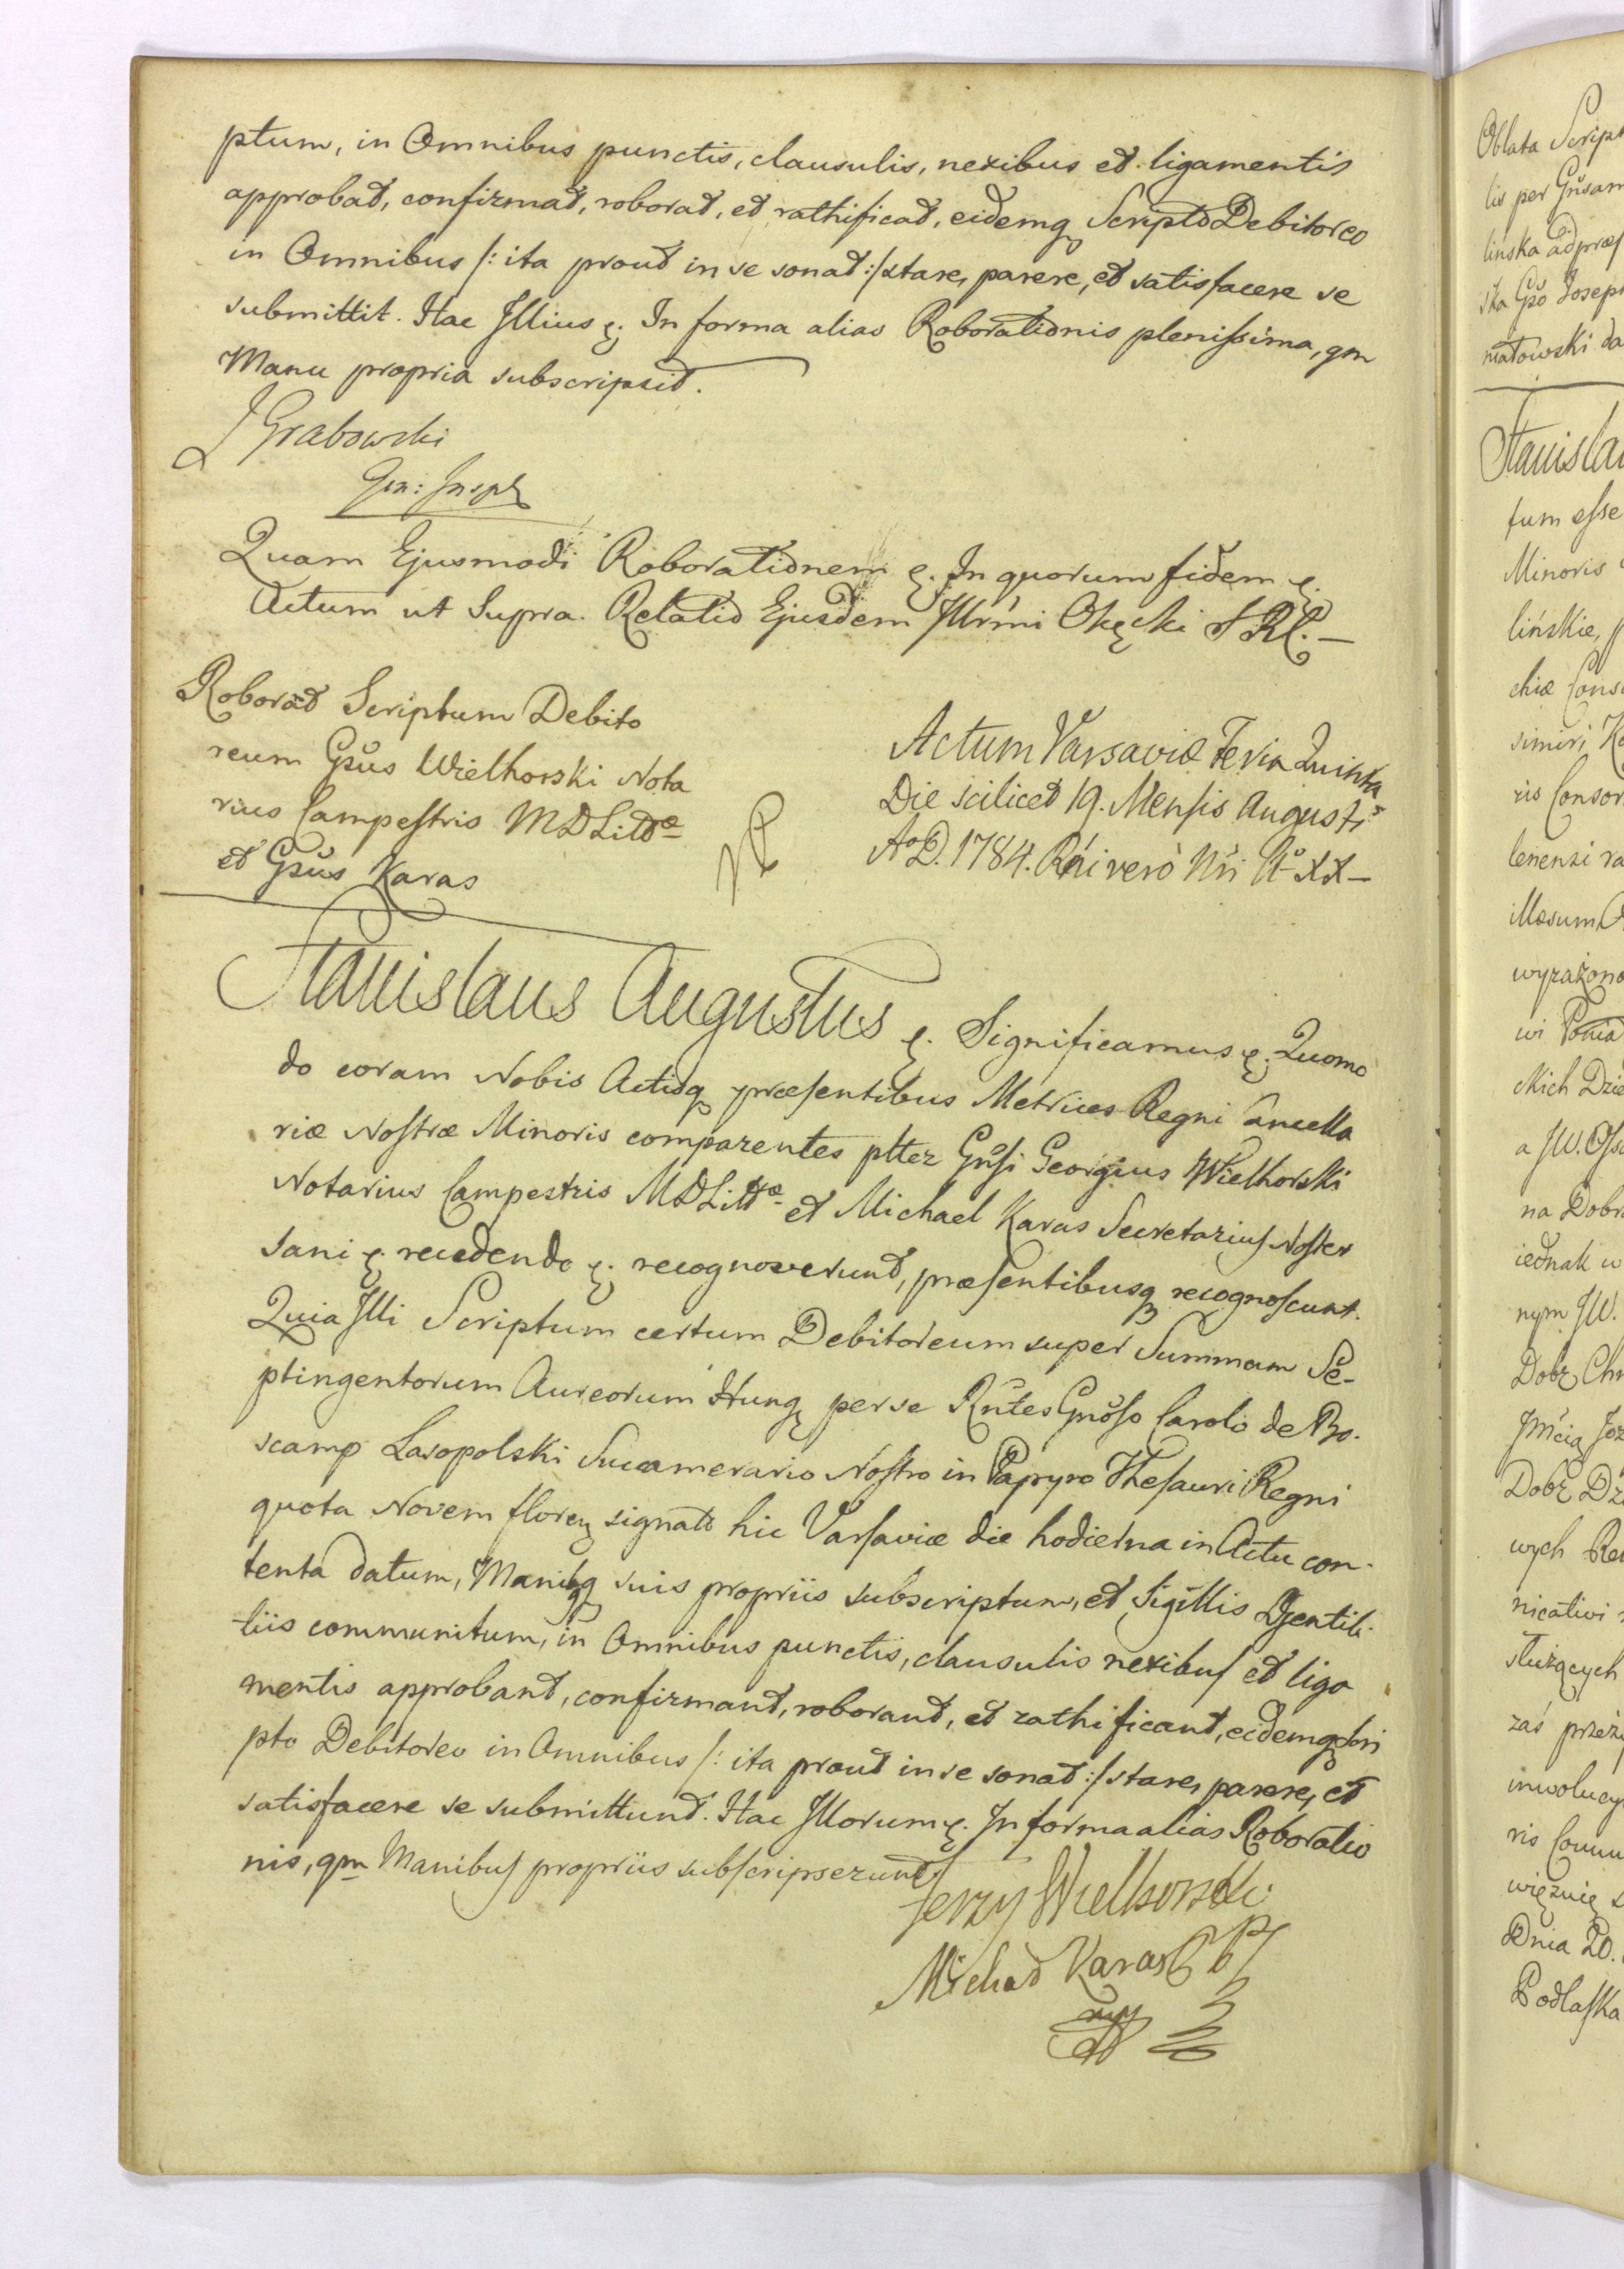 ptum, in Omnibus punctis, clausulis, nexibus et ligamentis
approbat, confirmat, roborat, et rathificat, eidemq Scripto Debitoreo
in Omnibus /: ita prout in se sonat :/ stare, parere, et satisfacere se
submittit. Hac Illius &. In forma alias Roborationis plenissima, qm
Manu propria subscripsit.
Grabowski
Quam Ejusmodi Roborationem &. In quorum fidem &.
Actum ut Supra. Relatio Ejusdem Illrmi Okęcki S R C. –
Roborat Scriptum Debito
reum Gsus Wielhorski Nota
rius Campestris MDLittae
et Gsus Karas
Actum Varsaviæ Feria Quinta
Die scilicet 19. Mensis Augusti
AoD. 1784. Rni vero Nri Ao XX –
Stanislaus Augustus &. Significamus &. Quomo
do coram Nobis Actisq præsentibus Metrices Regni Cancella
riæ Nostræ Minoris comparentes pltter Gnsi Georgius Wielhorski
Notarius Campestris MDLittæ et Michael Karas Secretarius Noster
sani &. recedendo &. recognoverunt, præsentibusq recognoscunt.
Quia Illi Scriptum certum Debitoreum super Summam Se-
ptingentorum Aureorum Hung perse Rntes Gnoso Carolo de Bo-
scamp Lasopolski Succamerario Nostro in Papyro Thesauri Regni
quota Novem floren signato hic Varsaviæ die hodierna in Actu con-
tenta datum, Manibq suis propriis subscriptum, et Sigillis Gentili-
tiis communitum, in Omnibus punctis, clausulis nexibus et liga
mentis approbant, confirmant, roborant, et rathificant, eidemq Scri
pto Debitoreo in Omnibus /: ita prout in se sonat :/ stare, parere, et
satisfacere se submittunt. Hac Illorum &. In forma alias Roboratio
nis, qm Manibus propriis subscripserunt.
Jerzy Wielhorski
Michał Karas
Oblata Script
lis per Gnsam
linska ad præs
ska Gso Joseph
matowski da
Stanisla
tum esse
Minoris
lińskie, p
chiæ Cons
simiri K
ris Consor
lenensi ra
illæsum
wyrażono
wi Ponia
ckich Dzie
a JW. Oss
na Dobr
iednak w
nym JW.
Dobr Ch
Jmcią Joz
Dobr Dz
wych Re
nicativi
służących
zaś przeży
inwolucy
ris Comm
więznię s
Dnia 20.
Podlaska